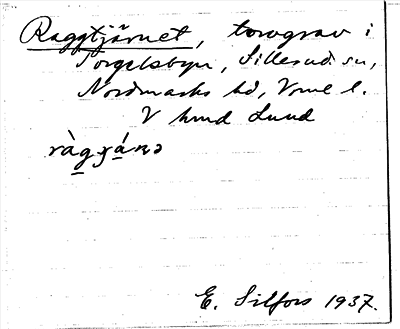 Raggtjärnet, torvgrav i
Torgelsbyn, Silleruds sn,
Nordmarks hd, Vrml l.
V hmd Lund
E. Silfors 1937.